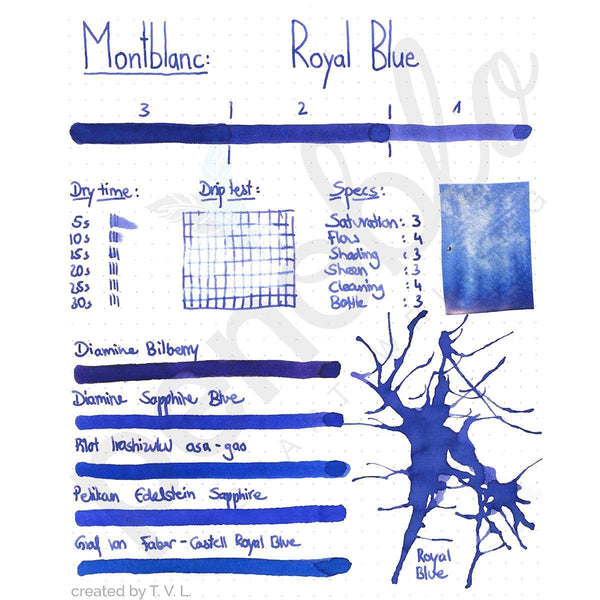 Montblanc: Royal Blue
3 2 1
Dry time:
5s
10s
15s
20s
25s
30s
Drip test:
Specs:
Saturation: 3
Flow : 4
Shading : 3
Sheen : 3
Cleaning : 4
Bottle : 3
Diamine Bilberry
Diamine Sapphire Blue
Pilot Iroshizuku asa-gao
Pelikan Edelstein Sapphire
Graf von Faber-Castell Royal Blue
Royal
Blue
created by T. V. L.